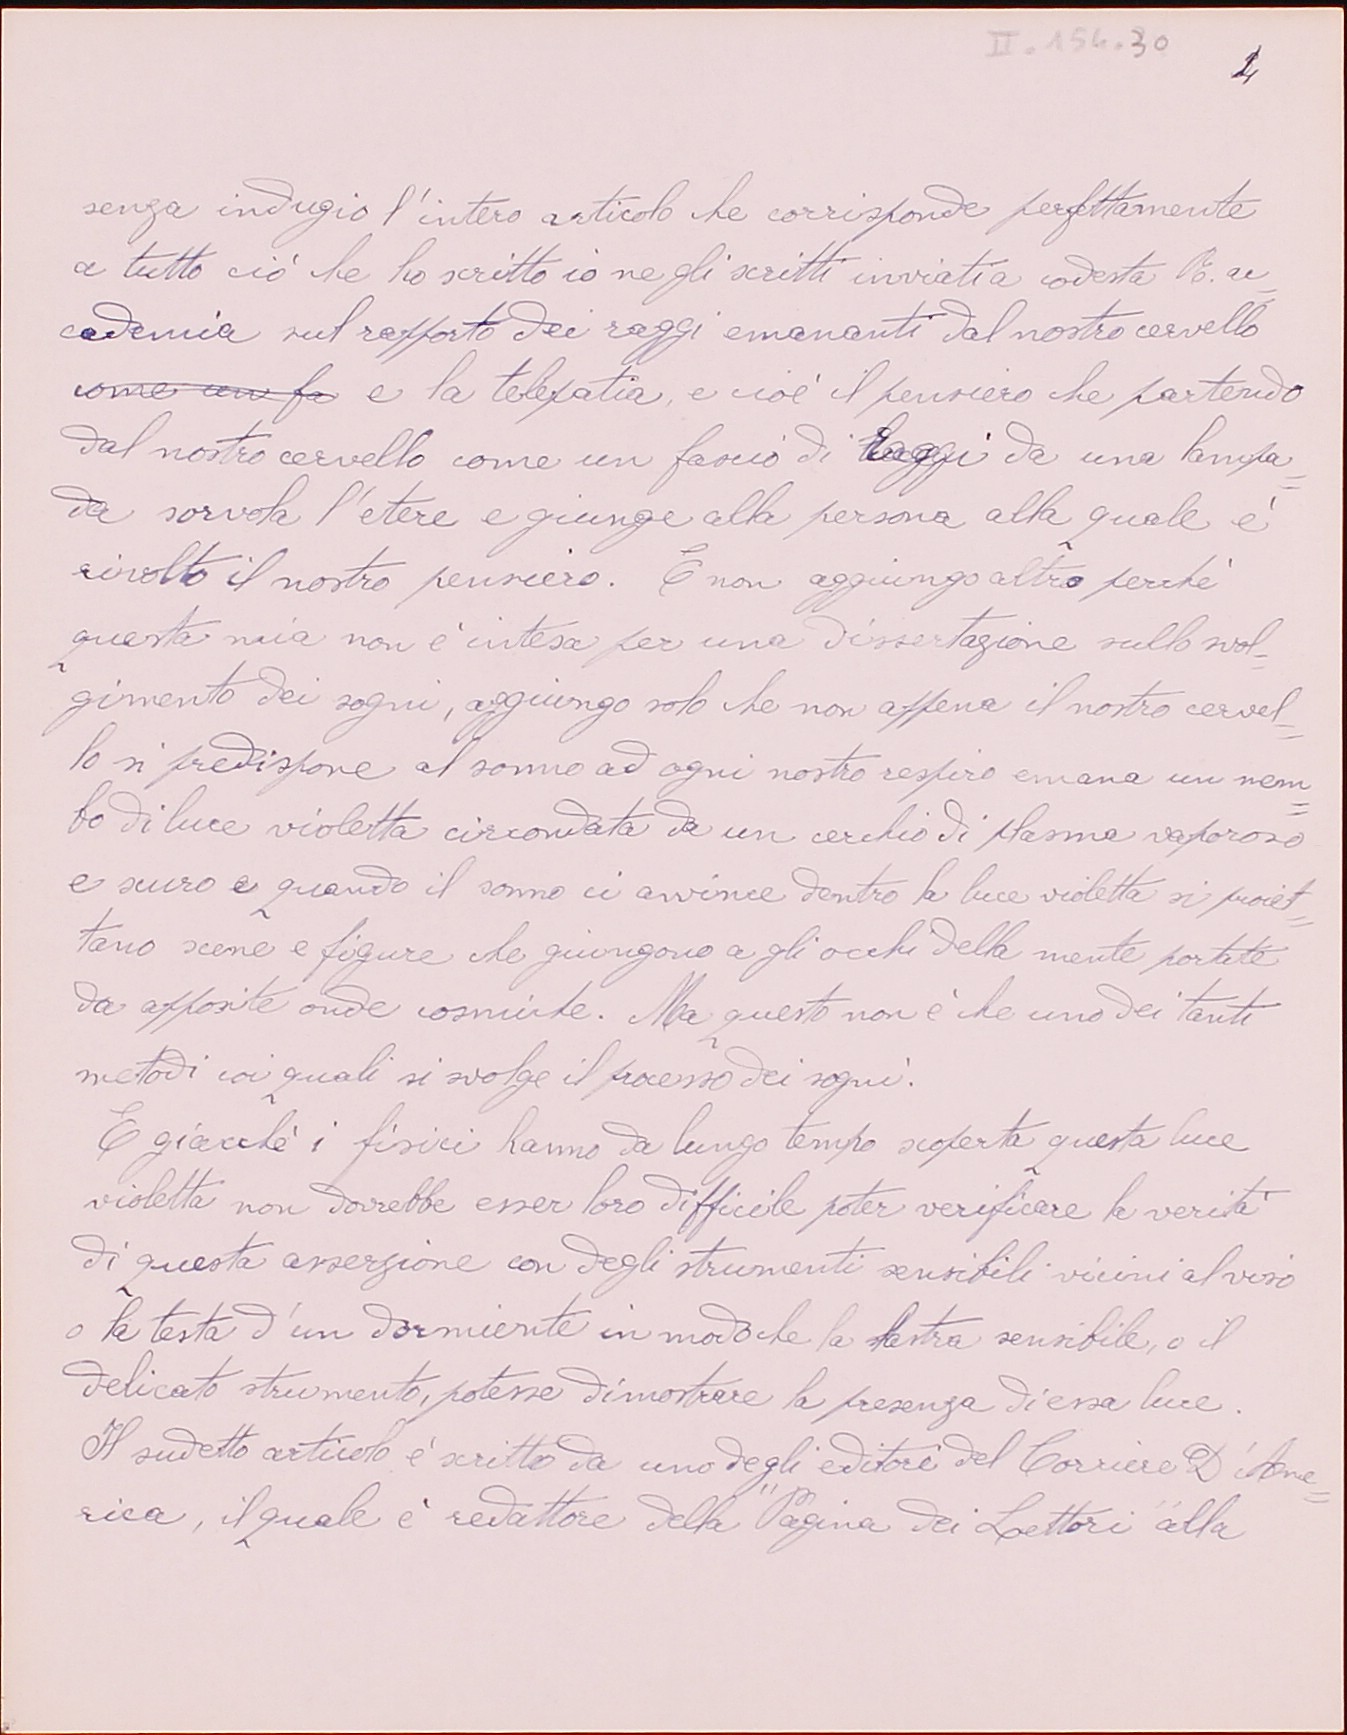 II.154.30
2
senza indugio l'intero articolo che corrisponde perfettamente
a tutto ciò che ho scritto io negli scritti inviati a codesta R. ac=
cademia sul rapporto dei raggi emananti dal nostro cervello
come un fa e la telepatia, e cioè il pensiero che partendo
dal nostro cervello come un fascio di raggi da una lampa=
da sorvola l'etere e giunge alla persona alla quale è
rivolto il nostro pensiero. E non aggiungo altro perché
questa mia non è intesa per una dissertazione sullo svol=
gimento dei sogni, aggiungo solo che non appena il nostro cervel=
lo si predispone al sonno ad ogni nostro respiro emana un nem=
bo di luce violetta circondata da un cerchio di plasma vaporoso
e scuro e quando il sonno ci avvince dentro la luce violetta si proiet=
tano scene e figure che giungono agli occhi della mente portate
da apposite onde cosmiche. Ma questo non è che uno dei tanti
metodi coi quali si svolge il processo dei sogni.
E giacché i fisici hanno da lungo tempo scoperta questa luce
violetta non dovrebbe esser loro difficile poter verificare la verità
di questa asserzione con degli strumenti sensibili vicini al viso
o la testa d'un dormiente in modo che la lastra sensibile, o il
delicato strumento, potesse dimostrare la presenza di essa luce.
Il sudetto articolo è scritto da uno degli editori del Corriere D'Ame=
rica, il quale è redattore della "Pagina dei Lettori" alla